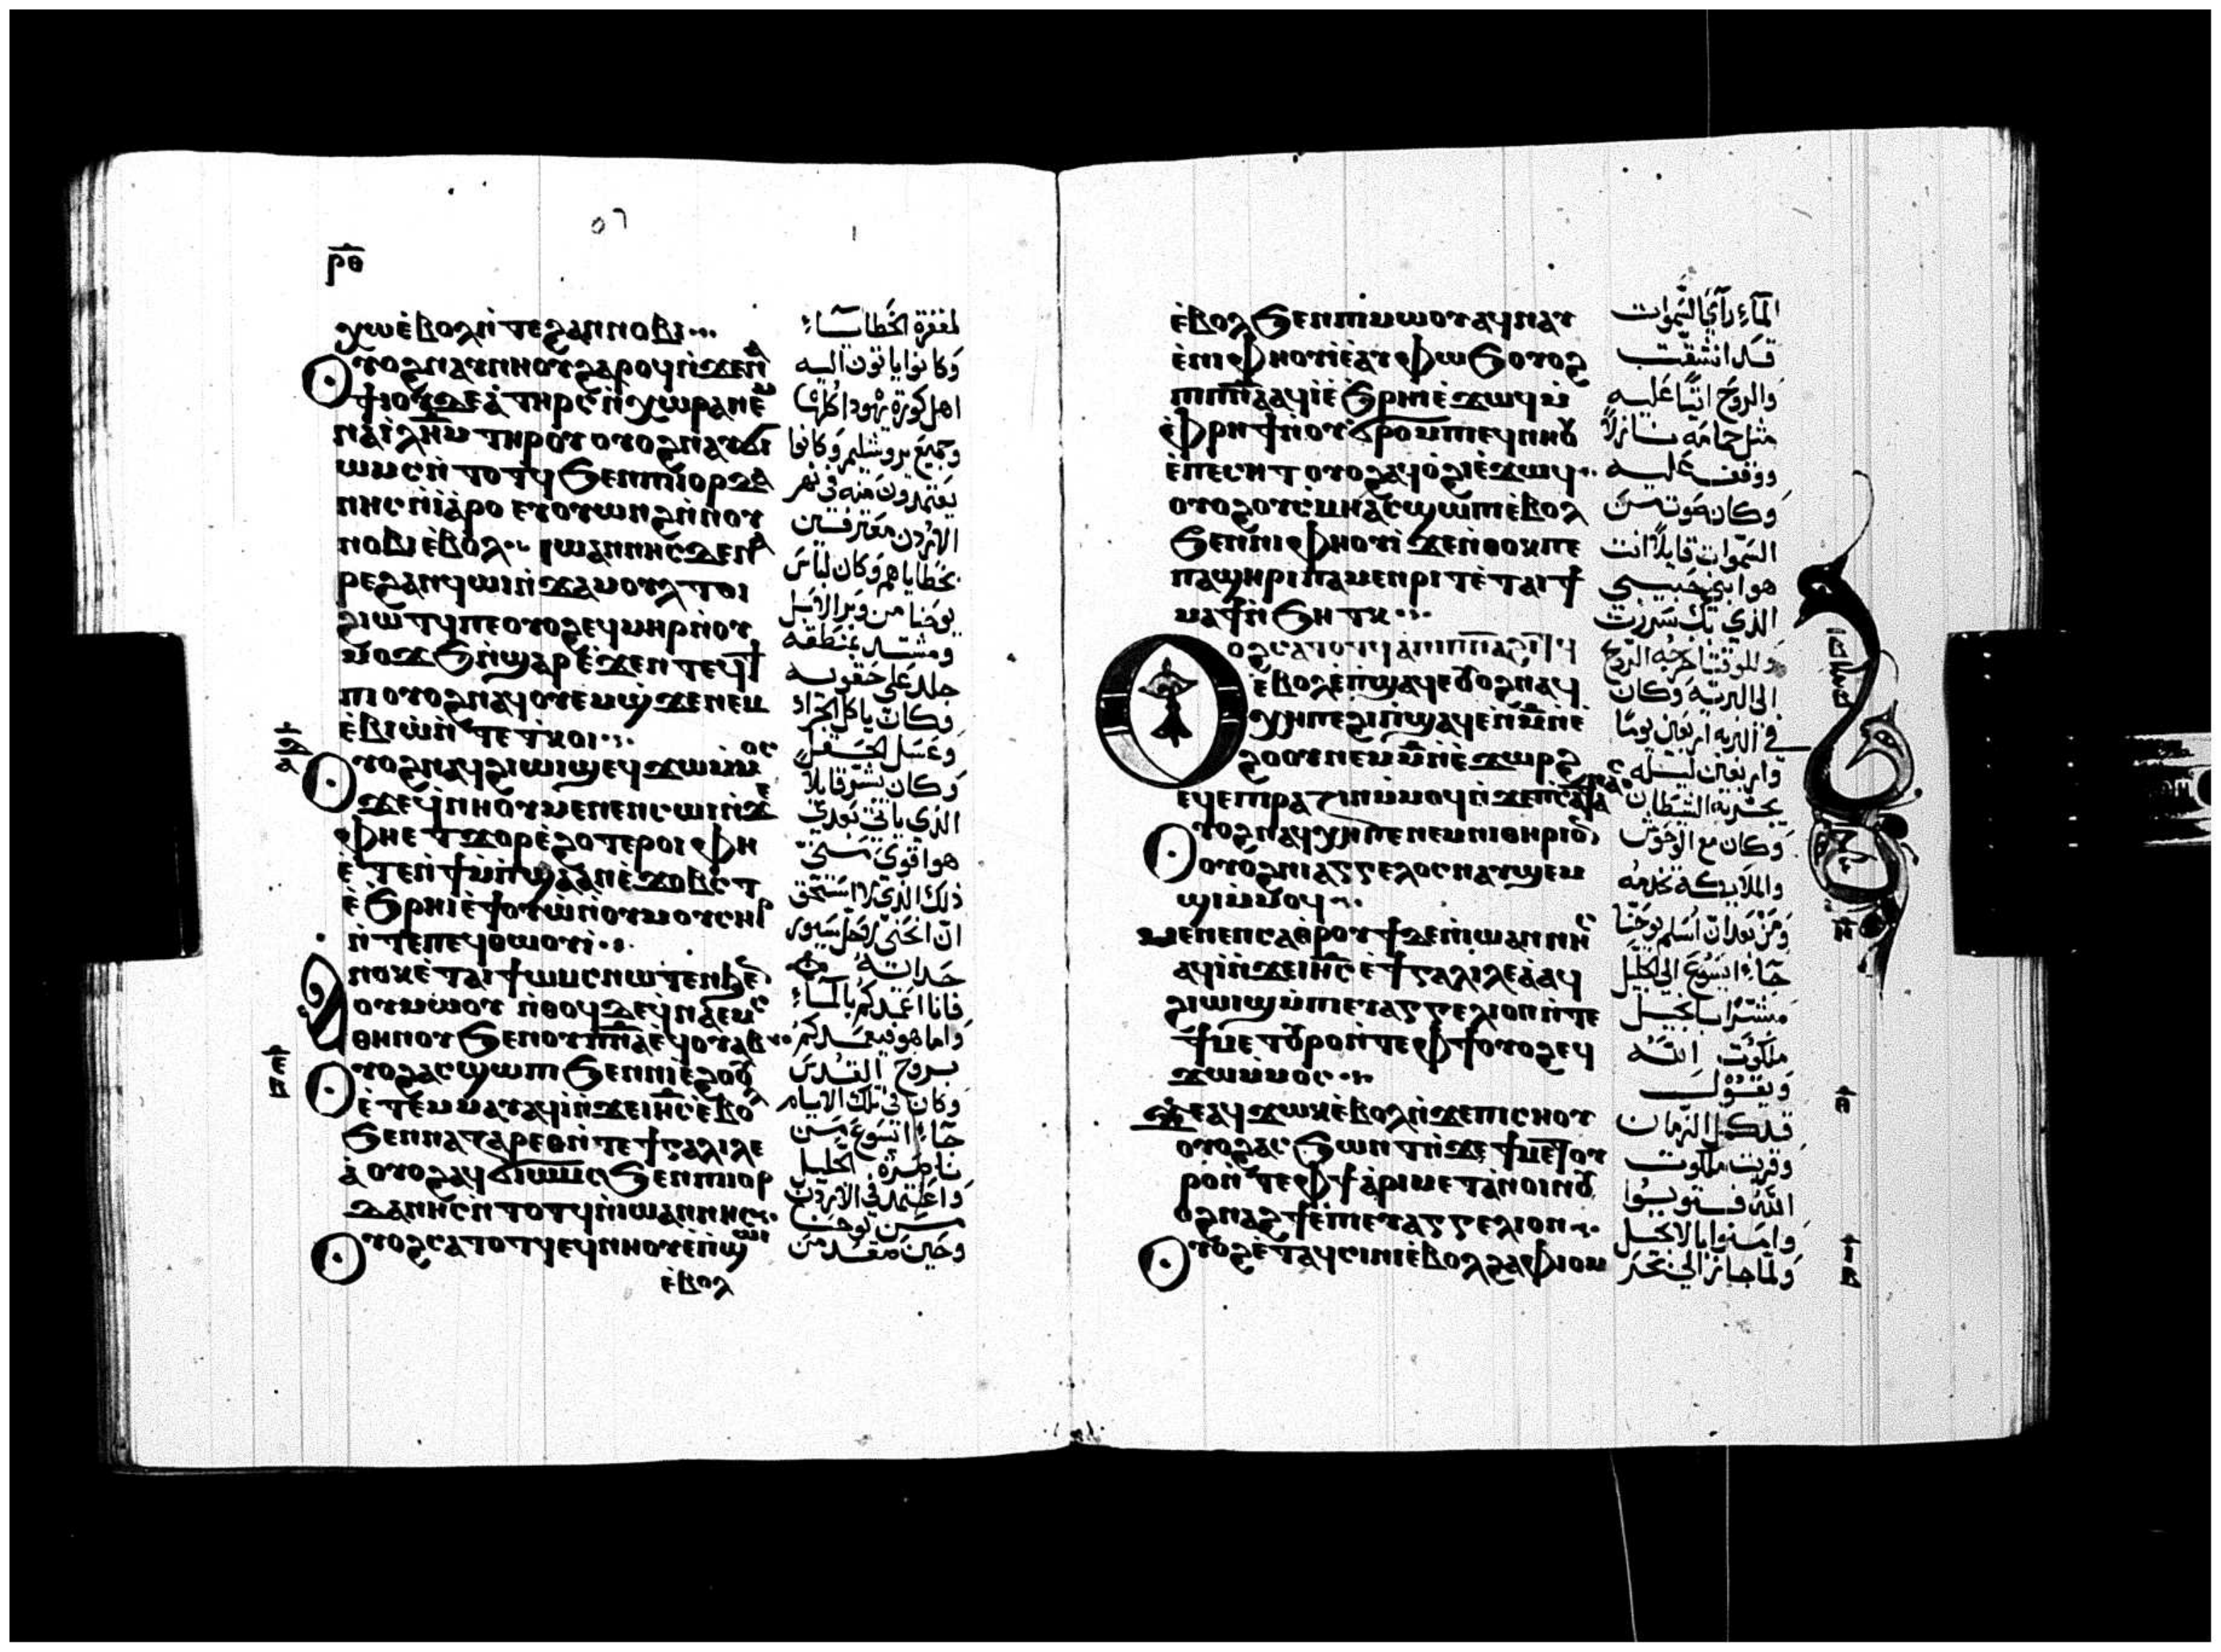 ⲣ̅ⲑ̅
ⲭⲱ ⲉ̀ⲃⲟⲗ ⲛ̀ⲧⲉ ϩⲁⲛⲛⲟⲃⲓ
ⲟⲩⲟϩ ⲛⲁⲩⲛⲏⲟⲩ ϩⲁⲣⲟϥ ⲛ̀ϫⲉ ⲛⲁ
ϯⲓⲟⲩⲇⲉⲁ̀ ⲧⲏⲣⲥ ⲛ̀ⲭⲱⲣⲁ ⲛⲉⲙ
ⲛⲁⲓ̀ⲗ̅ⲏ̅ⲙ̅ ⲧⲏⲣⲟⲩ ⲟⲩⲟϩ ⲛⲁⲩϭⲓ
ⲱⲙⲥ ⲛ̀ⲧⲟⲧϥ ϧⲉⲛ ⲡⲓⲓⲟⲣⲇⲁ
ⲛⲏⲥ ⲛ̀ⲓⲁ̀ⲣⲟ ⲉⲩⲟⲩⲱⲛϩ ⲛ̀ⲛⲟⲩ
ⲛⲟⲃⲓ ⲉ̀ⲃⲟⲗ ⲓⲱⲁⲛⲛⲏⲥ ⲇⲉ ⲛⲁ
ⲣⲉ ϩⲁⲛϥⲱⲓ ⲛ̀ϫⲁⲙⲟⲩⲗ ⲧⲟⲓ
ϩⲓⲱⲧϥ ⲡⲉ ⲟⲩⲟϩ ⲉϥⲙⲏⲣ ⲛ̀ⲟⲩ
ⲙⲟϫϧ ⲛ̀ϣⲁⲣ ⲉ̀ϫⲉⲛ ⲧⲉϥϯ
ⲡⲓ ⲟⲩⲟϩ ⲛⲁϥⲟⲩⲉⲙ ϣϫⲉ ⲛⲉⲙ
ⲉ̀ⲃⲓⲱ̀ ⲛ̀ⲧⲉ ⲧⲕⲟⲓ
ⲟⲩⲟϩ ⲛⲁϥϩⲓⲱⲓϣ ⲉϥϫⲱ ⲙ̀ⲙⲟⲥ
ϫⲉ ϥ̀ⲛⲏⲟⲩ ⲙⲉⲛⲉⲛⲥⲱⲓ ⲛ̀ϫⲉ
ⲫⲏ ⲉⲧϫⲟⲣ ⲉ̀ϩⲟⲧⲉⲣⲟⲓ ⲫⲏ
ⲉ̀ⲧⲉ ⲛ̀ϯⲙ̀ⲡϣⲁ ⲁⲛ ⲉ̀ϫⲟⲃⲥⲧ
ⲉ̀ϧⲣⲏⲓ ⲉ̀ϯⲟⲩⲱ̀ ⲛ̀ⲟⲩⲙⲟⲩⲥⲏⲣ
ⲛ̀ⲧⲉ ⲡⲉϥⲑⲱⲟⲩⲓ
ⲁⲛⲟⲕ ⲉ̀ⲧⲁⲓϯⲱⲙⲥ ⲛⲱⲧⲉⲛ ϧⲉⲛ
ⲟⲩⲙⲱⲟⲩ ⲛ̀ⲑⲟϥ ⲇⲉ ϥ̀ⲛⲁⲉⲙⲥ
ⲑⲏⲛⲟⲩ ϧⲉⲛ ⲟⲩⲡ̅ⲛ̅ⲁ̅ ⲉϥⲟⲩⲁⲃ
ⲟⲩⲟϩ ⲁⲥϣⲱⲡⲓ ϧⲉⲛ ⲛⲓⲉ̀ϩⲟⲟⲩ
ⲉ̀ⲧⲉⲙⲙⲁⲩ ⲁϥⲓ̀ ⲛ̀ϫⲉ ⲓⲏ̅ⲥ̅ ⲉ̀ⲃⲟⲗ
ϧⲉⲛ ⲛⲁⲍⲁⲣⲉⲑ ⲛ̀ⲧⲉ ϯⲅⲁⲗⲓⲗⲉ
ⲁ̀ ⲟⲩⲟϩ ⲁϥϭⲓⲱⲙⲥ ϧⲉⲛ ⲡⲓⲓⲟⲣ
ⲇⲁⲛⲏⲥ ⲛ̀ⲧⲟⲧϥ ⲛ̀ⲓⲱⲁⲛⲛⲏⲥ
ⲟⲩⲟϩ ⲥⲁⲧⲟⲧϥ ⲉϥⲛⲏⲟⲩ ⲉ̀ⲡϣⲱⲓ
ⲉ̀ⲃⲟⲗ
لمغفرة الخطايا
وكانوا ياتون اليه
اهل كورة يهودا كلها
وجميع يروشليم وكانوا
يعتمدون منه في نهر
الاردن معترفين
بخطاياهم وكان لباس
يوحنا من وبر الابل
ومشتد بمنطقه
جلد على حقويه
وكان ياكل الجراد
وعسل الحقل
وكان يبشر قايلا
الذي ياتي بعدي
هو اقوي مني
ذلك الذي لا استحق
ان انحني لاحل سيور
حداته
فانا اعمدكم بالماء
واما هو فيعمدكم
بروح القدس
وكان في تلك الايام
جاء ايسوع من
ناصرة الجليل
واعتمد في الاردن
من يوحنا
وحين صعد من
ⲉ̀ⲃⲟⲗ ϧⲉⲛ ⲡⲓⲙⲱⲟⲩ ⲁϥⲛⲁⲩ
ⲉ̀ⲛⲓⲫⲏⲟⲩⲓ̀ ⲉ̀ⲁⲩⲫⲱϧ ⲟⲩⲟϩ
ⲡⲓⲡ̅ⲛ̅ⲁ̅ ⲁϥⲓ̀ ⲉ̀ϧⲣⲏⲓ ⲉ̀ϫⲱϥ ⲙ̀
ⲫⲣⲏϯ ⲛ̀ⲟⲩϭⲣⲟⲙⲡⲓ ⲉϥⲛⲏⲟⲩ
ⲉ̀ⲡⲉⲥⲏⲧ ⲟⲩⲟϩ ⲁϥⲟ̀ϩⲓ ⲉ̀ϫⲱϥ
ⲟⲩⲟϩ ⲟⲩⲥ̀ⲙⲏ ⲁⲥϣⲱⲡⲓ ⲉ̀ⲃⲟⲗ
ϧⲉⲛ ⲛⲓⲫⲏⲟⲩⲓ̀ ϫⲉ ⲛ̀ⲑⲟⲕ ⲡⲉ
ⲡⲁϣⲏⲣⲓ ⲡⲁⲙⲉⲛⲣⲓⲧ ⲉ̀ⲧⲁⲓϯ
ⲙⲁϯ ⲛ̀ϧⲏⲧⲕ
ⲟⲩⲟϩ ⲥⲁⲧⲟⲧϥ ⲁ̀ ⲡⲓⲡ̅ⲛ̅ⲁ̅ ϩⲓⲧϥ
ⲉ̀ⲃⲟⲗ ⲉ̀ⲡϣⲁϥⲉ ⲟⲩⲟϩ ⲛⲁϥ
ⲭⲏ ⲡⲉ ϩⲓ ⲡ̀ϣⲁϥⲉ ⲛ̀ⲙ̅ ⲛ̀ⲉ̀
ϩⲟⲟⲩ ⲛⲉⲙ ⲙ̅ ⲛ̀ⲉ̀ϫⲱⲣϩ
ⲉϥⲉⲣⲡⲓⲣⲁⲍⲓⲛ ⲙ̀ⲙⲟϥ ⲛ̀ϫⲉ ⲡⲥⲁⲧⲁⲛⲁⲥ
ⲟⲩⲟϩ ⲛⲁϥⲭⲏ ⲡⲉ ⲛⲉⲙ ⲛⲓⲑⲏⲣⲓⲟⲛ
ⲟⲩⲟϩ ⲛⲓⲁⲅⲅⲉⲗⲟⲥ ⲛⲁⲩϣⲉⲙ
ϣⲓ ⲙ̀ⲙⲟϥ
ⲙⲉⲛⲉⲛⲥⲁ ⲑⲣⲟⲩϯ ⲇⲉ ⲛ̀ⲓⲱⲁⲛⲛⲏⲥ
ⲁϥⲓ̀ ⲛ̀ϫⲉ ⲓⲏ̅ⲥ̅ ⲉ̀ϯⲅⲁⲗⲓⲗⲉⲁ̀ ⲁϥ
ϩⲓⲱⲓϣ ⲙ̀ⲡⲓⲉⲩⲁⲅⲅⲉⲗⲓⲟⲛ ⲛ̀ⲧⲉ
ϯⲙⲉⲧⲟⲩⲣⲟ ⲛ̀ⲧⲉ ⲫϯ ⲟⲩⲟϩ ⲉϥ
ϫⲱ ⲙ̀ⲙⲟⲥ
ϫⲉ ⲁϥϫⲱⲕ ⲉ̀ⲃⲟⲗ ⲛ̀ϫⲉ ⲡⲓⲥⲏⲟⲩ
ⲟⲩⲟϩ ⲁⲥϧⲱⲛⲧ ⲛ̀ϫⲉ ϯⲙⲉⲧⲟⲩ
ⲣⲟ ⲛ̀ⲧⲉ ⲫϯ ⲁ̀ⲣⲓⲙⲉⲧⲁⲛⲟⲓⲛ ⲟⲩ
ⲟϩ ⲛⲁϩϯ ⲉ̀ⲡⲓⲉⲩⲁⲅⲅⲉⲗⲓⲟⲛ
ⲟⲩⲟϩ ⲉ̀ⲧⲁϥⲥⲓⲛⲓ ⲉ̀ⲃⲟⲗ ϩⲁ ⲫⲓⲟⲙ
الماء راى السموات
قد انشقت
والروح اتيا عليه
مثل حمامه نازلا
ووقف عليه
وكان صوت من
السموات قايلا انت
هو ابني حبيبي
الذي بك سررت
وللوقت اخرجه الروح
الى البريه وكان
في البريه اربعين يوما
واربعين ليله
يجربه الشيطان
وكان مع الوحوش
والملايكة تخدمه
ومن بعد ان اسلم يوحنا
جاء ايسوع الي الجليل
مبشرا بانجيل
ملكوت الله
ويقول
قد كمل الزمان
وقربت ملكوت
الله فتوبوا
وامنوا بالانجيل
ولما جاز الي بحر